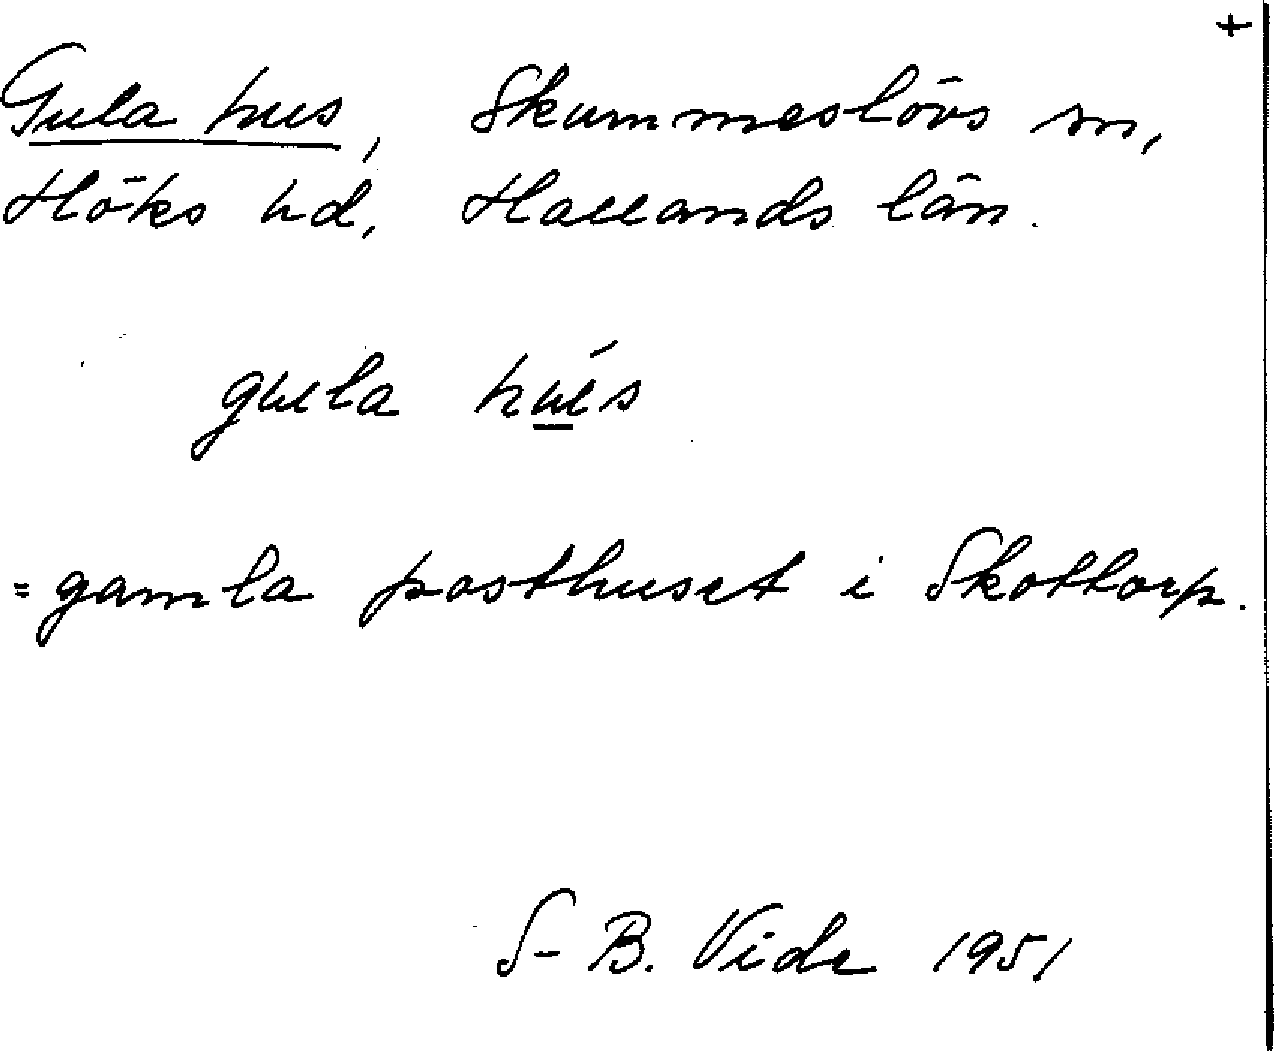 +
Gula hus, Skummeslövs sn,
Höks hd, Hallands län.
gula hú̲s
= gamla posthuset i Skottorp.
S-B. Vide 1951